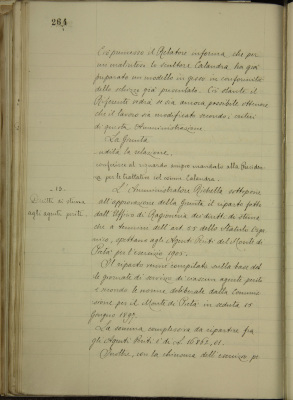 264
il Relatore informa, che per
lo scultore Calandra, ha già
preparato un modello in gesso in conformità
dello schizzo già presentato. Ciò stante il
Riferente vedrà se sia ancora possibile ottenere
che il lavoro sia modificato secondo i criteri
di questa Amministrazione.
La Giunta
udita la relazione
conferisce al
per le trattative col Calandra.
- 13. -
Diritti di stima
agli agenti periti
L'Amministratore Rebella sottopone
all'approvazione della Giunta il riparto fatto
dall'Ufficio di Ragioneria dei diritti di stima
che a termini dell'art. dello Statuto Orga
nico, spettano agli Agenti Periti del Monte di
Pietà per l'esercizio 1905.
Il riparto venne compilato sulla base del
le giornate di servizio di ciascun agente perito
e secondo le norme deliberate dalla Commis
sione per il Monte di Pietà in seduta
Giugno 1897.
La somma complessiva da ripartire fra
gli Agenti Periti è di L.
Inoltre, con la chiusura dell'esercizio